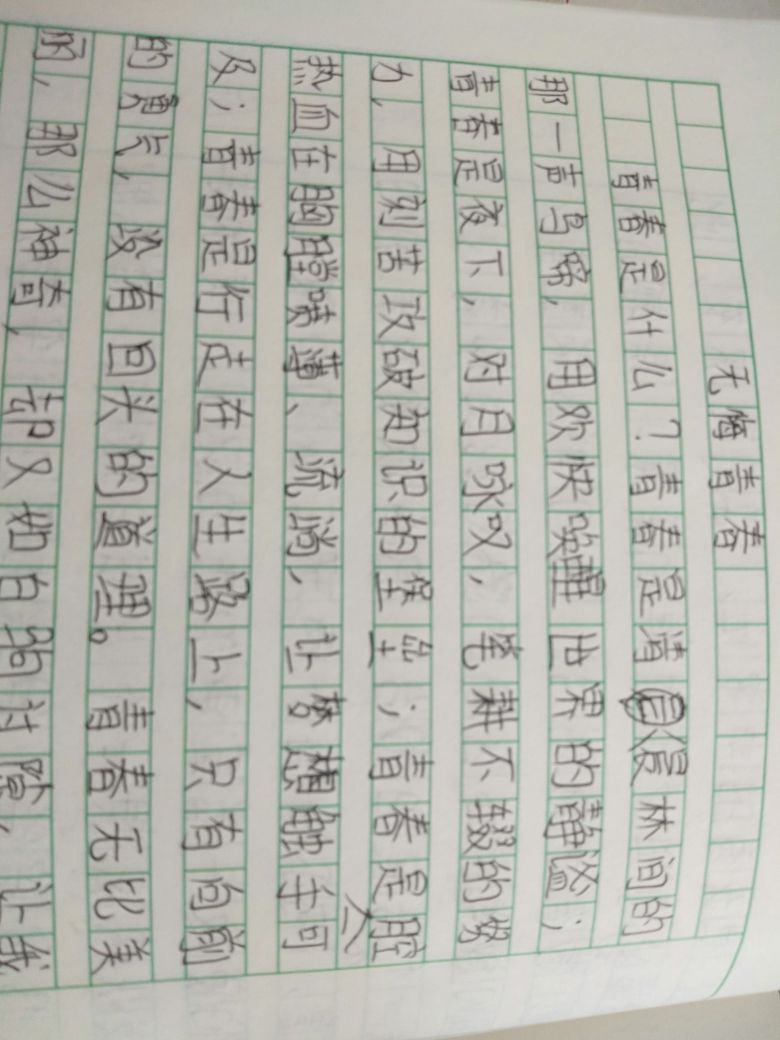 无悔青春
青春是什么？青春是清晨林间的
那一声鸟啼，用欢快唤醒世界的静谧；
青春是夜下，对月咏叹，笔耕不辍的努
力，用刻苦攻破知识的堡垒；青春是腔
热血在胸膛喷薄、流淌，让梦想触手可
及；青春是行走在人生路上，只有向前
的勇气，没有回头的道理。青春无比美
丽，那么神奇，却又如白驹过隙，让我